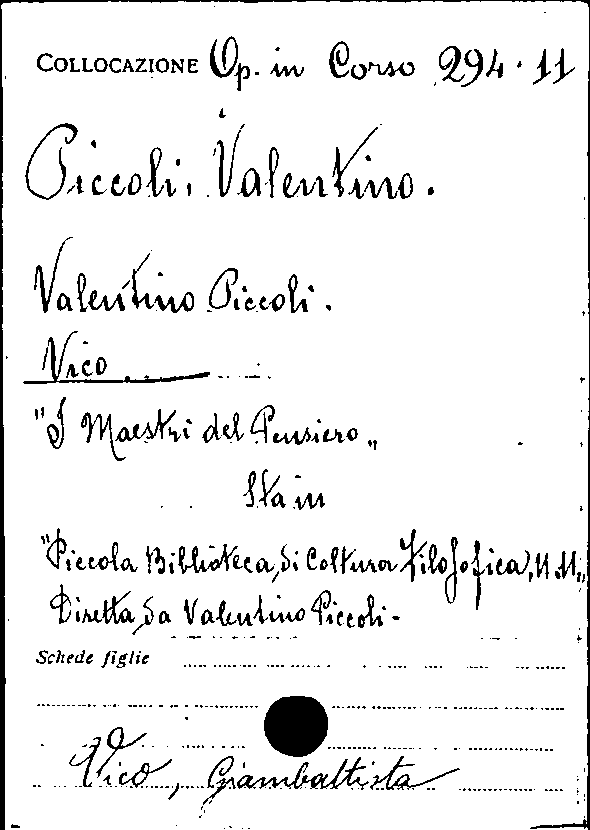 COLLOCAZIONE Op. in Corso 294·11
Piccoli, Valentino.
Valentino Piccoli.
Vico
"I Maestri del Pensiero"
Sta in
"Piccola Biblioteca di Coltura Filosofica, N. 11"
Diretta da Valentino Piccoli -
Schede figlie
Vico, Giambattista